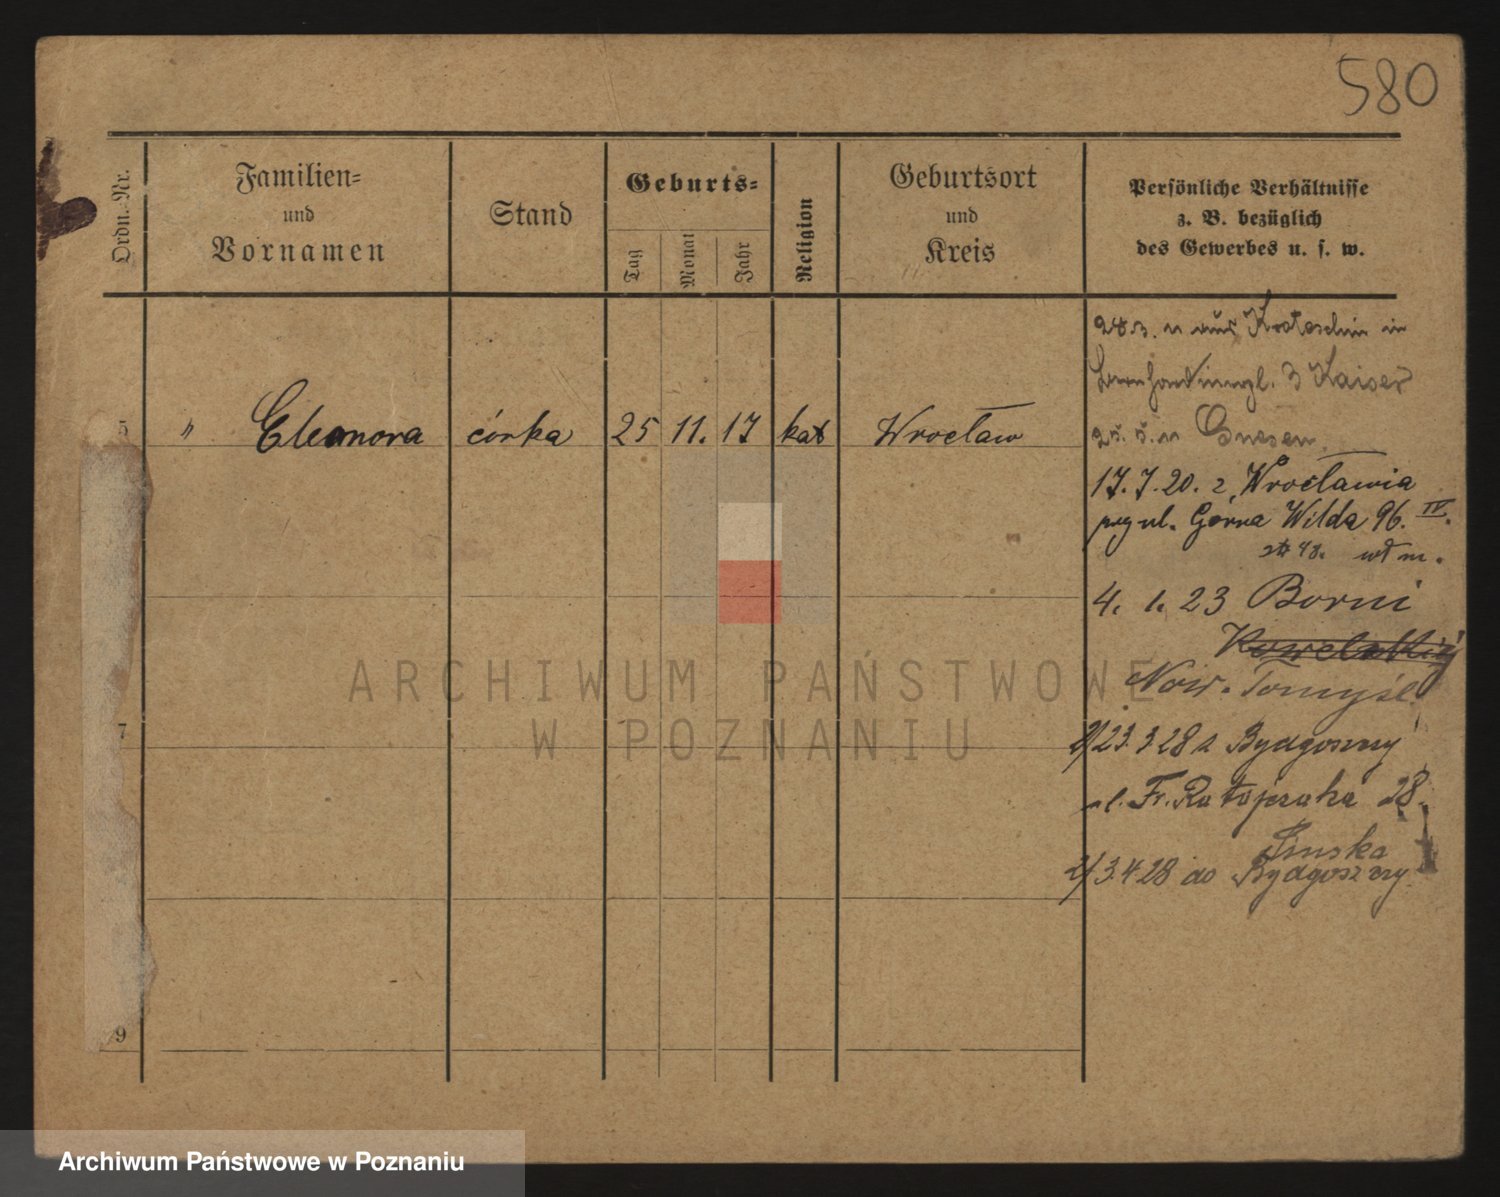 580
Ordn. Nr.
Familien=
und
Vornamen
Stand
Geburts=
Tag
Monat
Jahr
Religion
Geburtsort
und
Kreis
Persönliche Verhältnisse
z. B. bezüglich
des Gewerbes u. s. w.
Krotoschin in
3 Kaiser
Gnesen
5 " Eleonora córka 25 11. 17 kat Wrocław
17. 7. 20. z Wrocławia
ul. Górna Wilda 96. IV.
4. 1. 23 Borni
Now. Tomyśl
2/ 23. 3 28 z Bydgoszczy
ul. Fr. Ratajczaka 28.
3/ 3. 4 28 do Bydgoszczy
7
9
ARCHIWUM PAŃSTWOWE
W POZNANIU
Archiwum Państwowe w Poznaniu